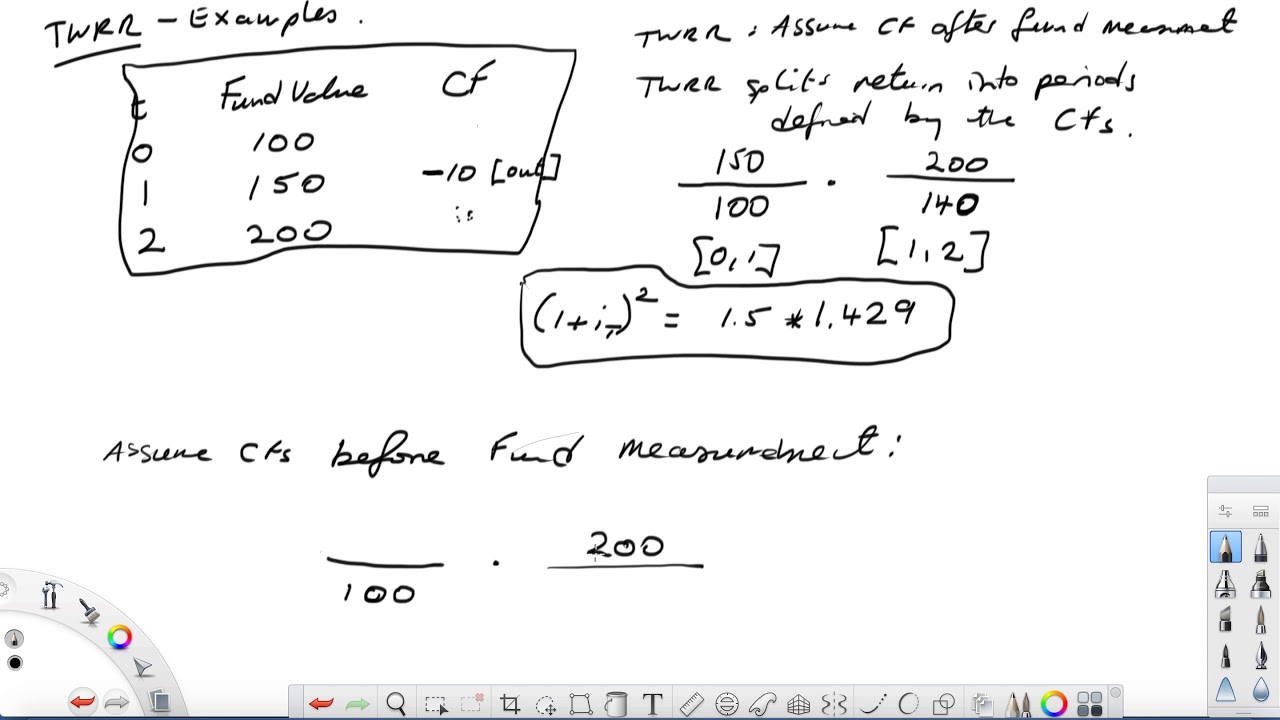 TWRR - Examples.
t Fund Value CF
0 100
1 150 -10 [out]
2 200
TWRR : Assume CF after fund measurmet
TWRR splits return into periods
defined by the CFs.
150 / 100 . 200 / 140
[0,1] [1,2]
(1+i_T)^2 = 1.5 * 1.429
Assume CFs before Fund measurement:
___ / 100 . 200 / ___
T